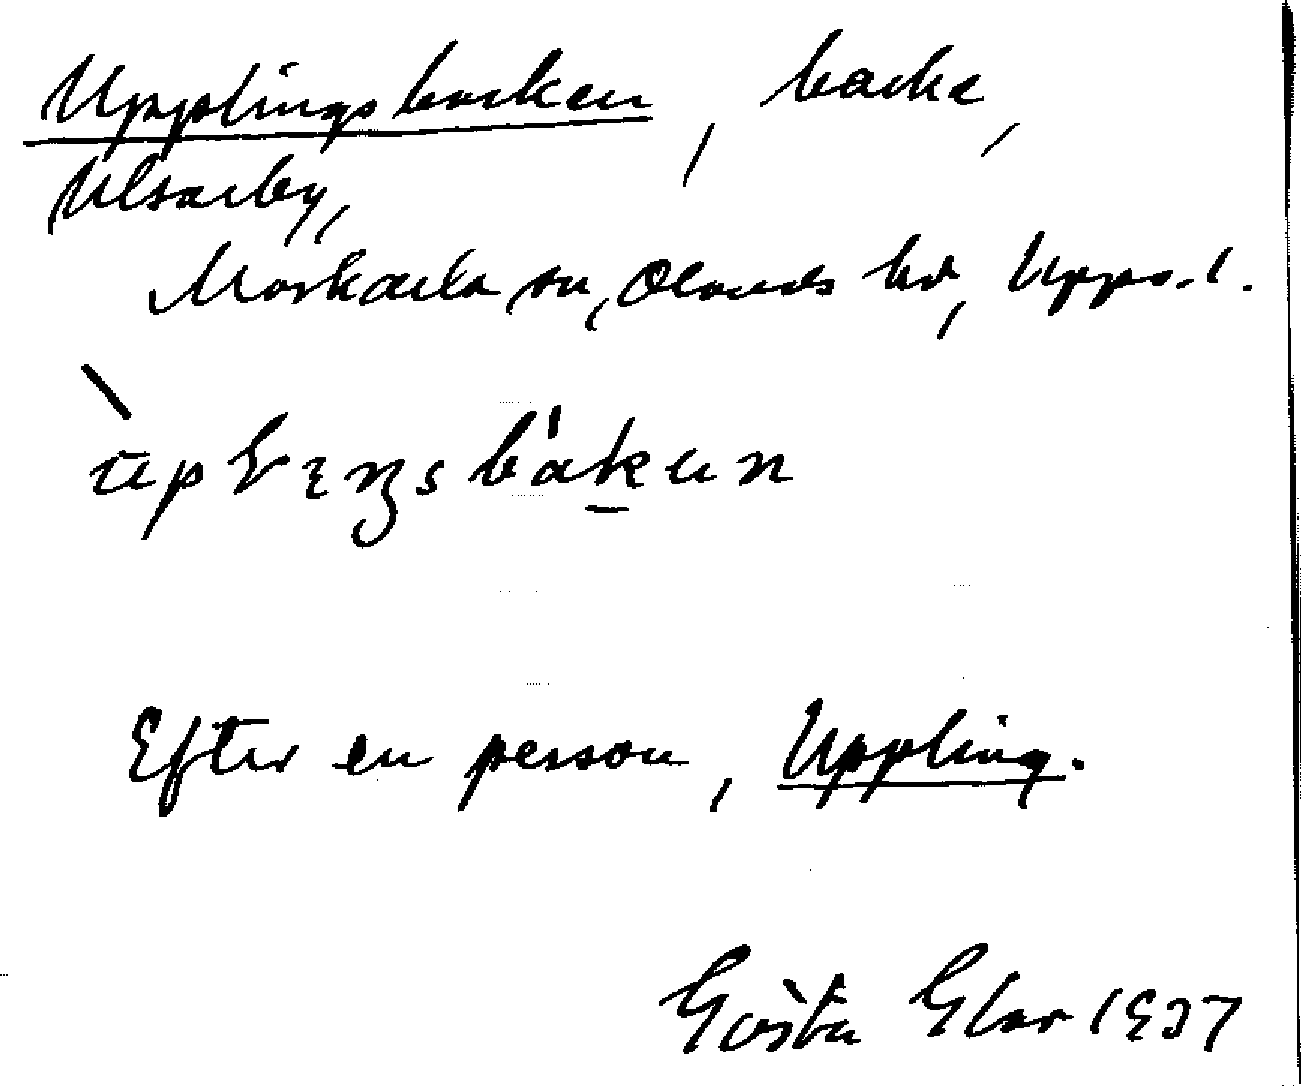 Upplingsbacken, backe,
Ulvarby,
Morkarla sn, Olands hd, Upps. l.
Efter en person, Uppling.
Gösta Elar 1937